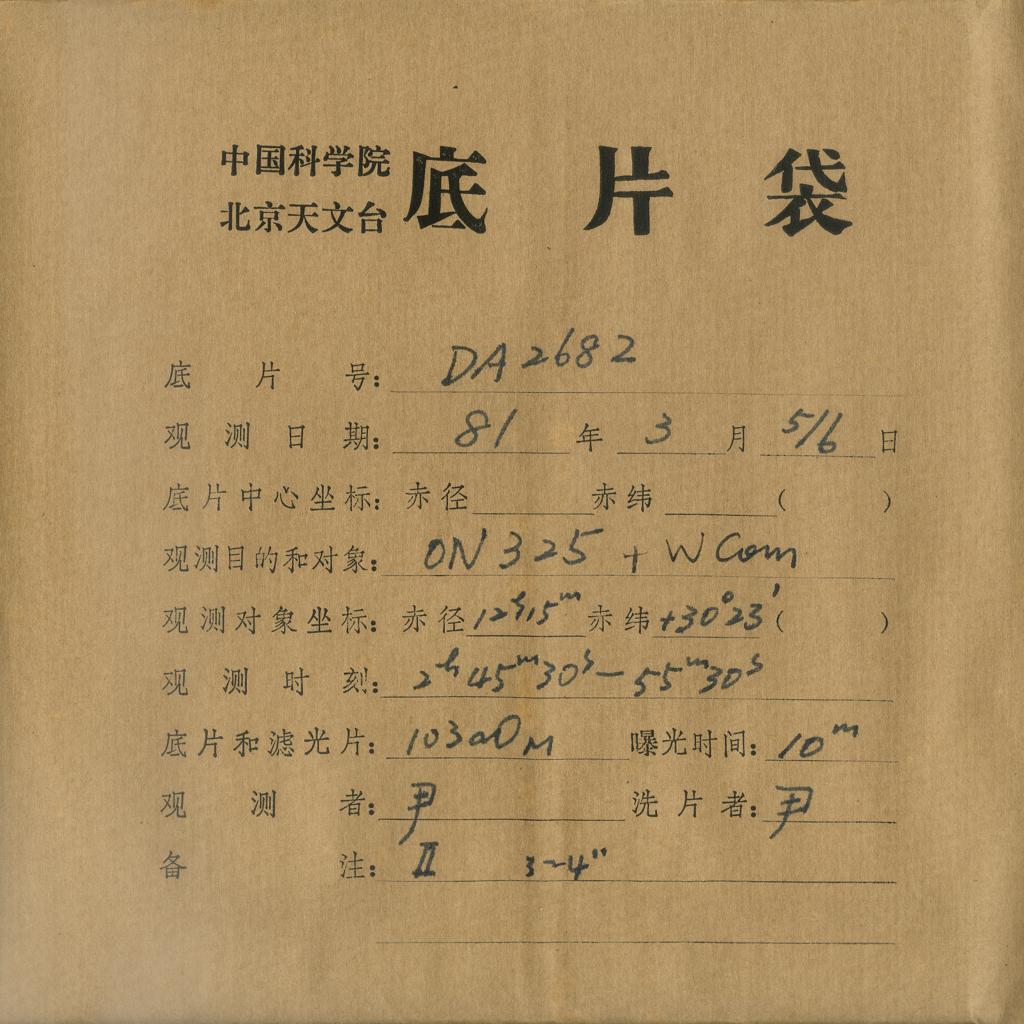 中国科学院
北京天文台 底片袋
底片号: DA2682
观测日期: 81年3月5/6日
底片中心坐标: 赤径 赤纬 ( )
观测目的和对象: ON325 + W Com
观测对象坐标: 赤径12h15m赤纬+30°23′( )
观测时刻: 2h45m30s—55m30s
底片和滤光片: 103aO M 曝光时间: 10m
观测者: 尹 洗片者: 尹
备注: II 3~4"